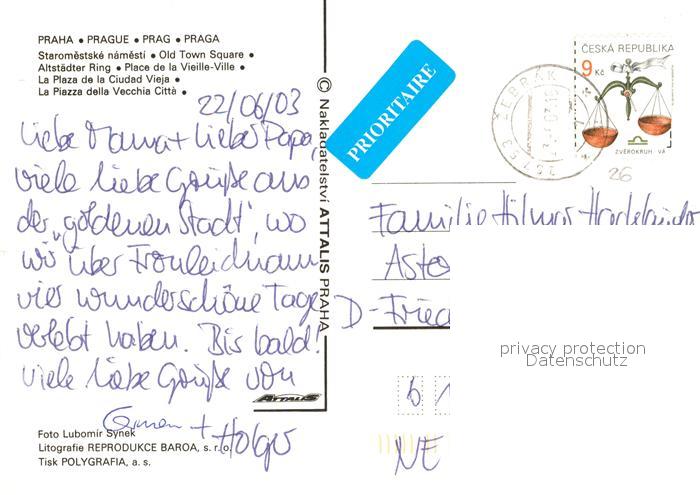 PRAHA • PRAGUE • PRAG • PRAGA
Staroměstské náměstí • Old Town Square •
Altstädter Ring • Place de la Vieille-Ville •
La Plaza de la Ciudad Vieja •
La Piazza della Vecchia Città •
22/06/03
Liebe Mama + Lieber Papa,
viele liebe Grüße aus
der „goldenen Stadt“, wo
wir über Fronleichnam
vier wunderschöne Tage
verlebt haben. Bis bald!
Viele liebe Grüße von
Carmen + Holger
Foto Lubomír Synek
Litografie REPRODUKCE BAROA, s.r.o.
Tisk POLYGRAFIA, a. s.
© Nakladatelství ATTALIS PRAHA
ATTALIS
PRIORITAIRE
ČESKÁ REPUBLIKA
9 Kč
ZVĚROKRUH - VÁ
ŽEBRÁK
267 53
26
Familie Hilmar
Aste
D-Fried
6 1
NE
privacy protection
Datenschutz